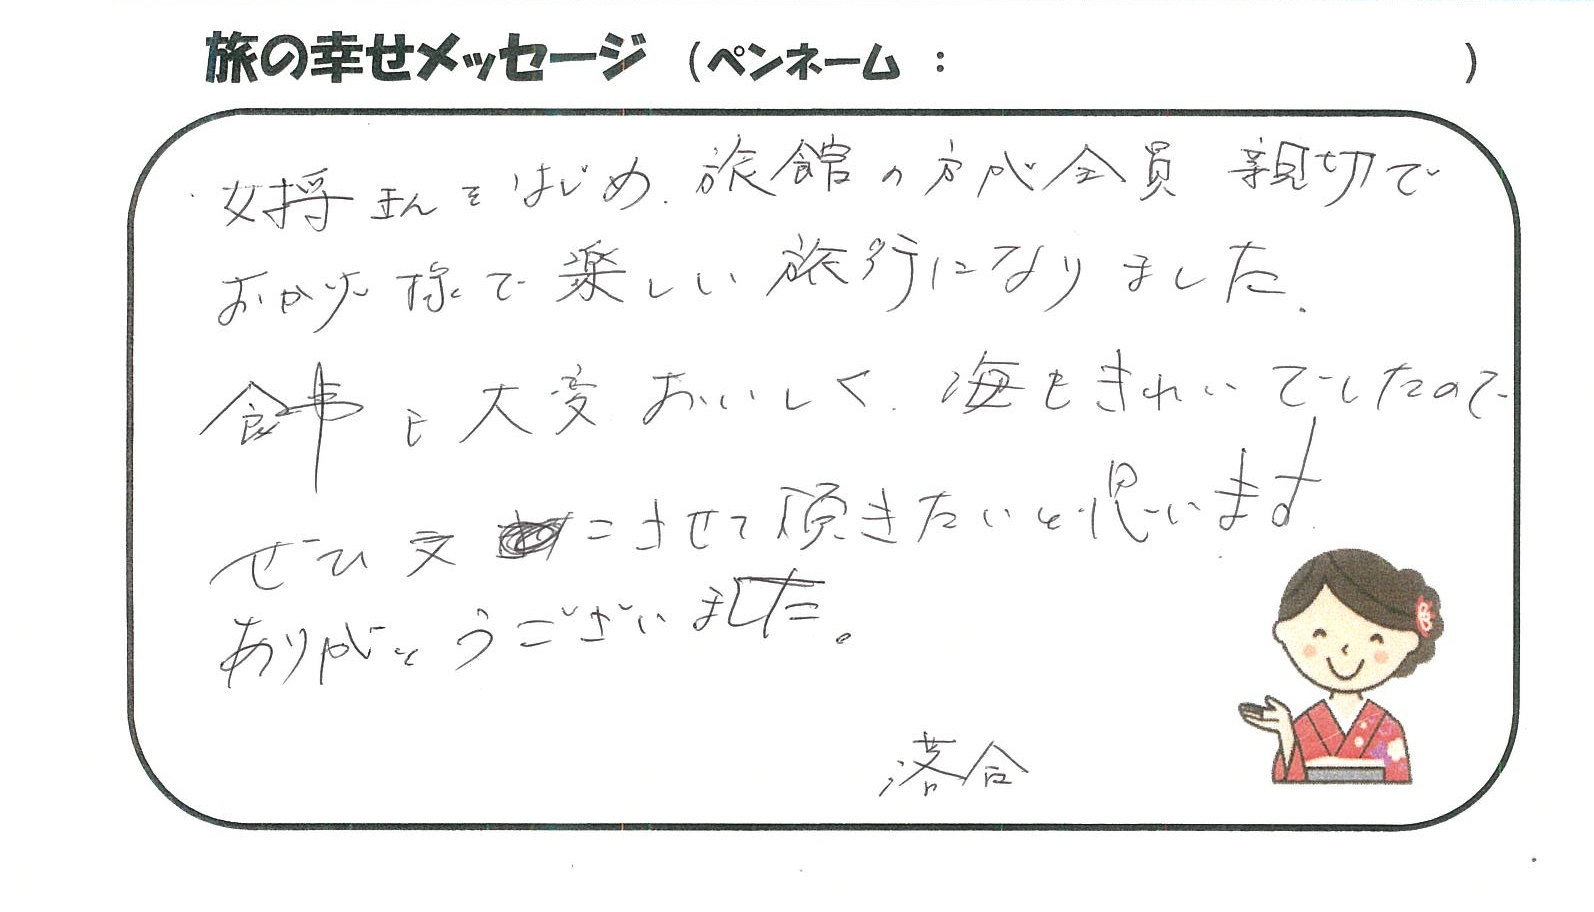 旅の幸せメッセージ (ペンネーム : )
女将さんをはじめ、旅館の方が全員 親切で
おかげ様で楽しい旅行になりました。
食事も大変おいしく、海もきれいでしたので
ぜひ又 こさせて頂きたいと思います。
ありがとうございました。
落合